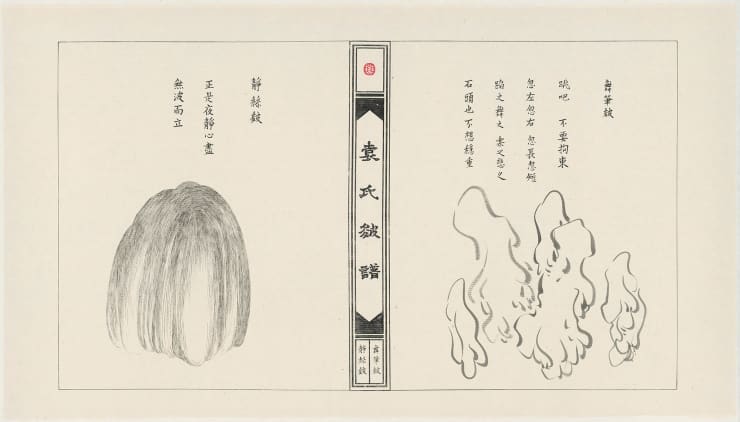 舞筆皴
跳吧 不要拘束
忽左忽右 忽長忽短
蹈之舞之 之 之
石頭也不想穩重
袁氏皴譜
舞筆皴
靜絲皴
靜絲皴
正是夜靜心盡
無波而立